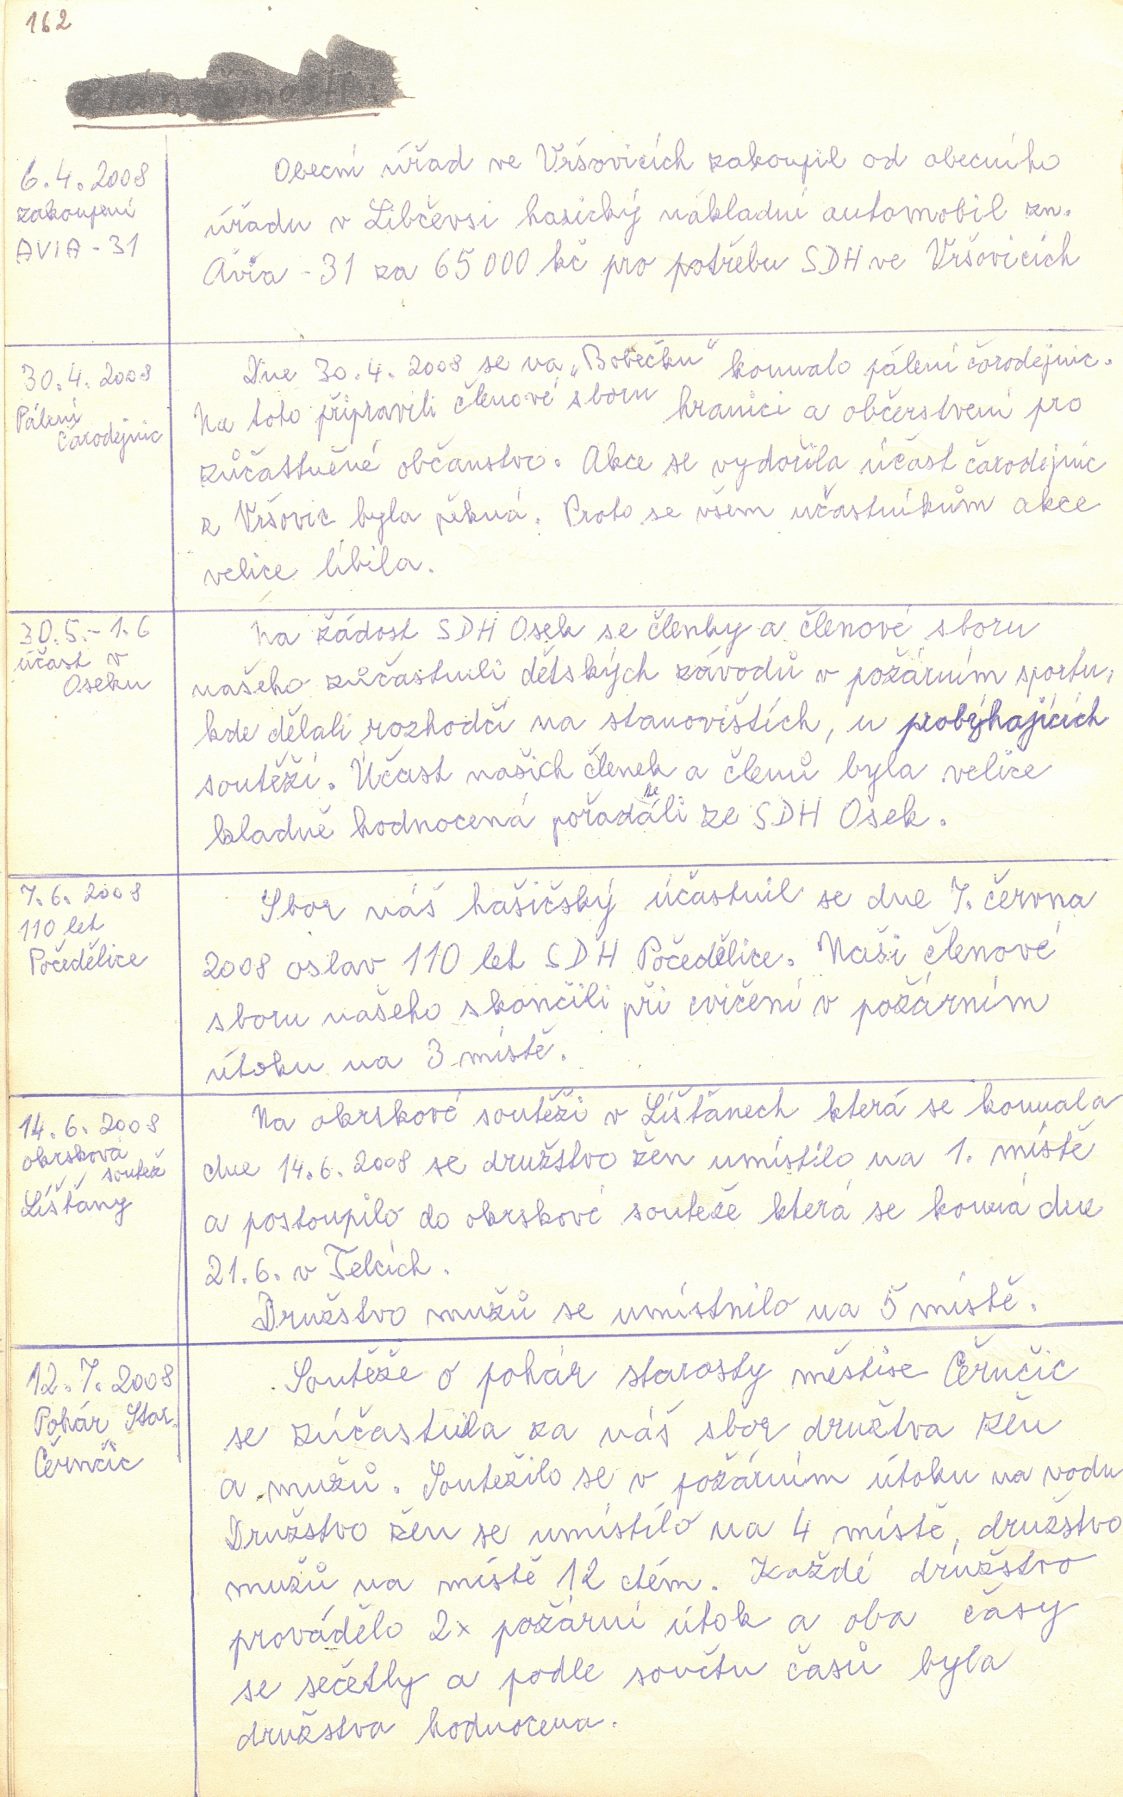 162
6.4.2008
zakoupení
AVIA - 31
Obecní úřad ve Vršovicích zakoupil od obecního
úřadu v Libčevsi hasický nákladní automobil zn.
Avia - 31 za 65 000 kč pro potřebu SDH ve Vršovicích
30.4.2008
Pálení
čarodejnic
Dne 30.4.2008 se na „Bobečku“ konnalo pálení čarodejnic.
Na toto připravili členové sboru hranici a občerstvení pro
zůčastněné občanstvo. Akce se vydařila účast čarodějnic
z Vršovic byla pěkná. Proto se všem učastníkům akce
velice líbila.
30.5.-1.6
účast v
Oseku
Na žádost SDH Osek se členky a členové sboru
našeho zůčastnili dětských závodů v požárním sportu,
kde dělali rozhodčí na stanovištích, u probýhajících
soutěží. Účast našich členek a členů byla velice
kladně hodnocená pořadáli ze SDH Osek.
7.6. 2008
110 let
Počedělice
Sbor náš hašičský účastnil se dne 7. června
2008 oslav 110 let SDH Počedělice. Naši členové
sboru našeho skončili při cvičení v požárním
útoku na 3 místě.
14.6.2008
okrsková
soutež
Líšťany
Na okrskové soutěži v Líšťanech která se konnala
dne 14.6.2008 se družstvo žen umístilo na 1. místě
a postoupilo do okrskové souteže která se konná dne
21.6. v Telcích.
Družstvo mužů se umístnilo na 5 místě.
12.7.2008
Pohár Star.
Černčic
Soutěže o pohár starosty městise Černčic
se zúčastnila za náš sbor družtva žen
a mužů. Soutežilo se v požárním útoku na vodu
Družstvo žen se umístilo na 4 místě, družstvo
mužů na místě 12 tém. Každé družstvo
provádělo 2x požární útok a oba časy
se sečetly a podle součtu časů byla
družstva hodnocena.